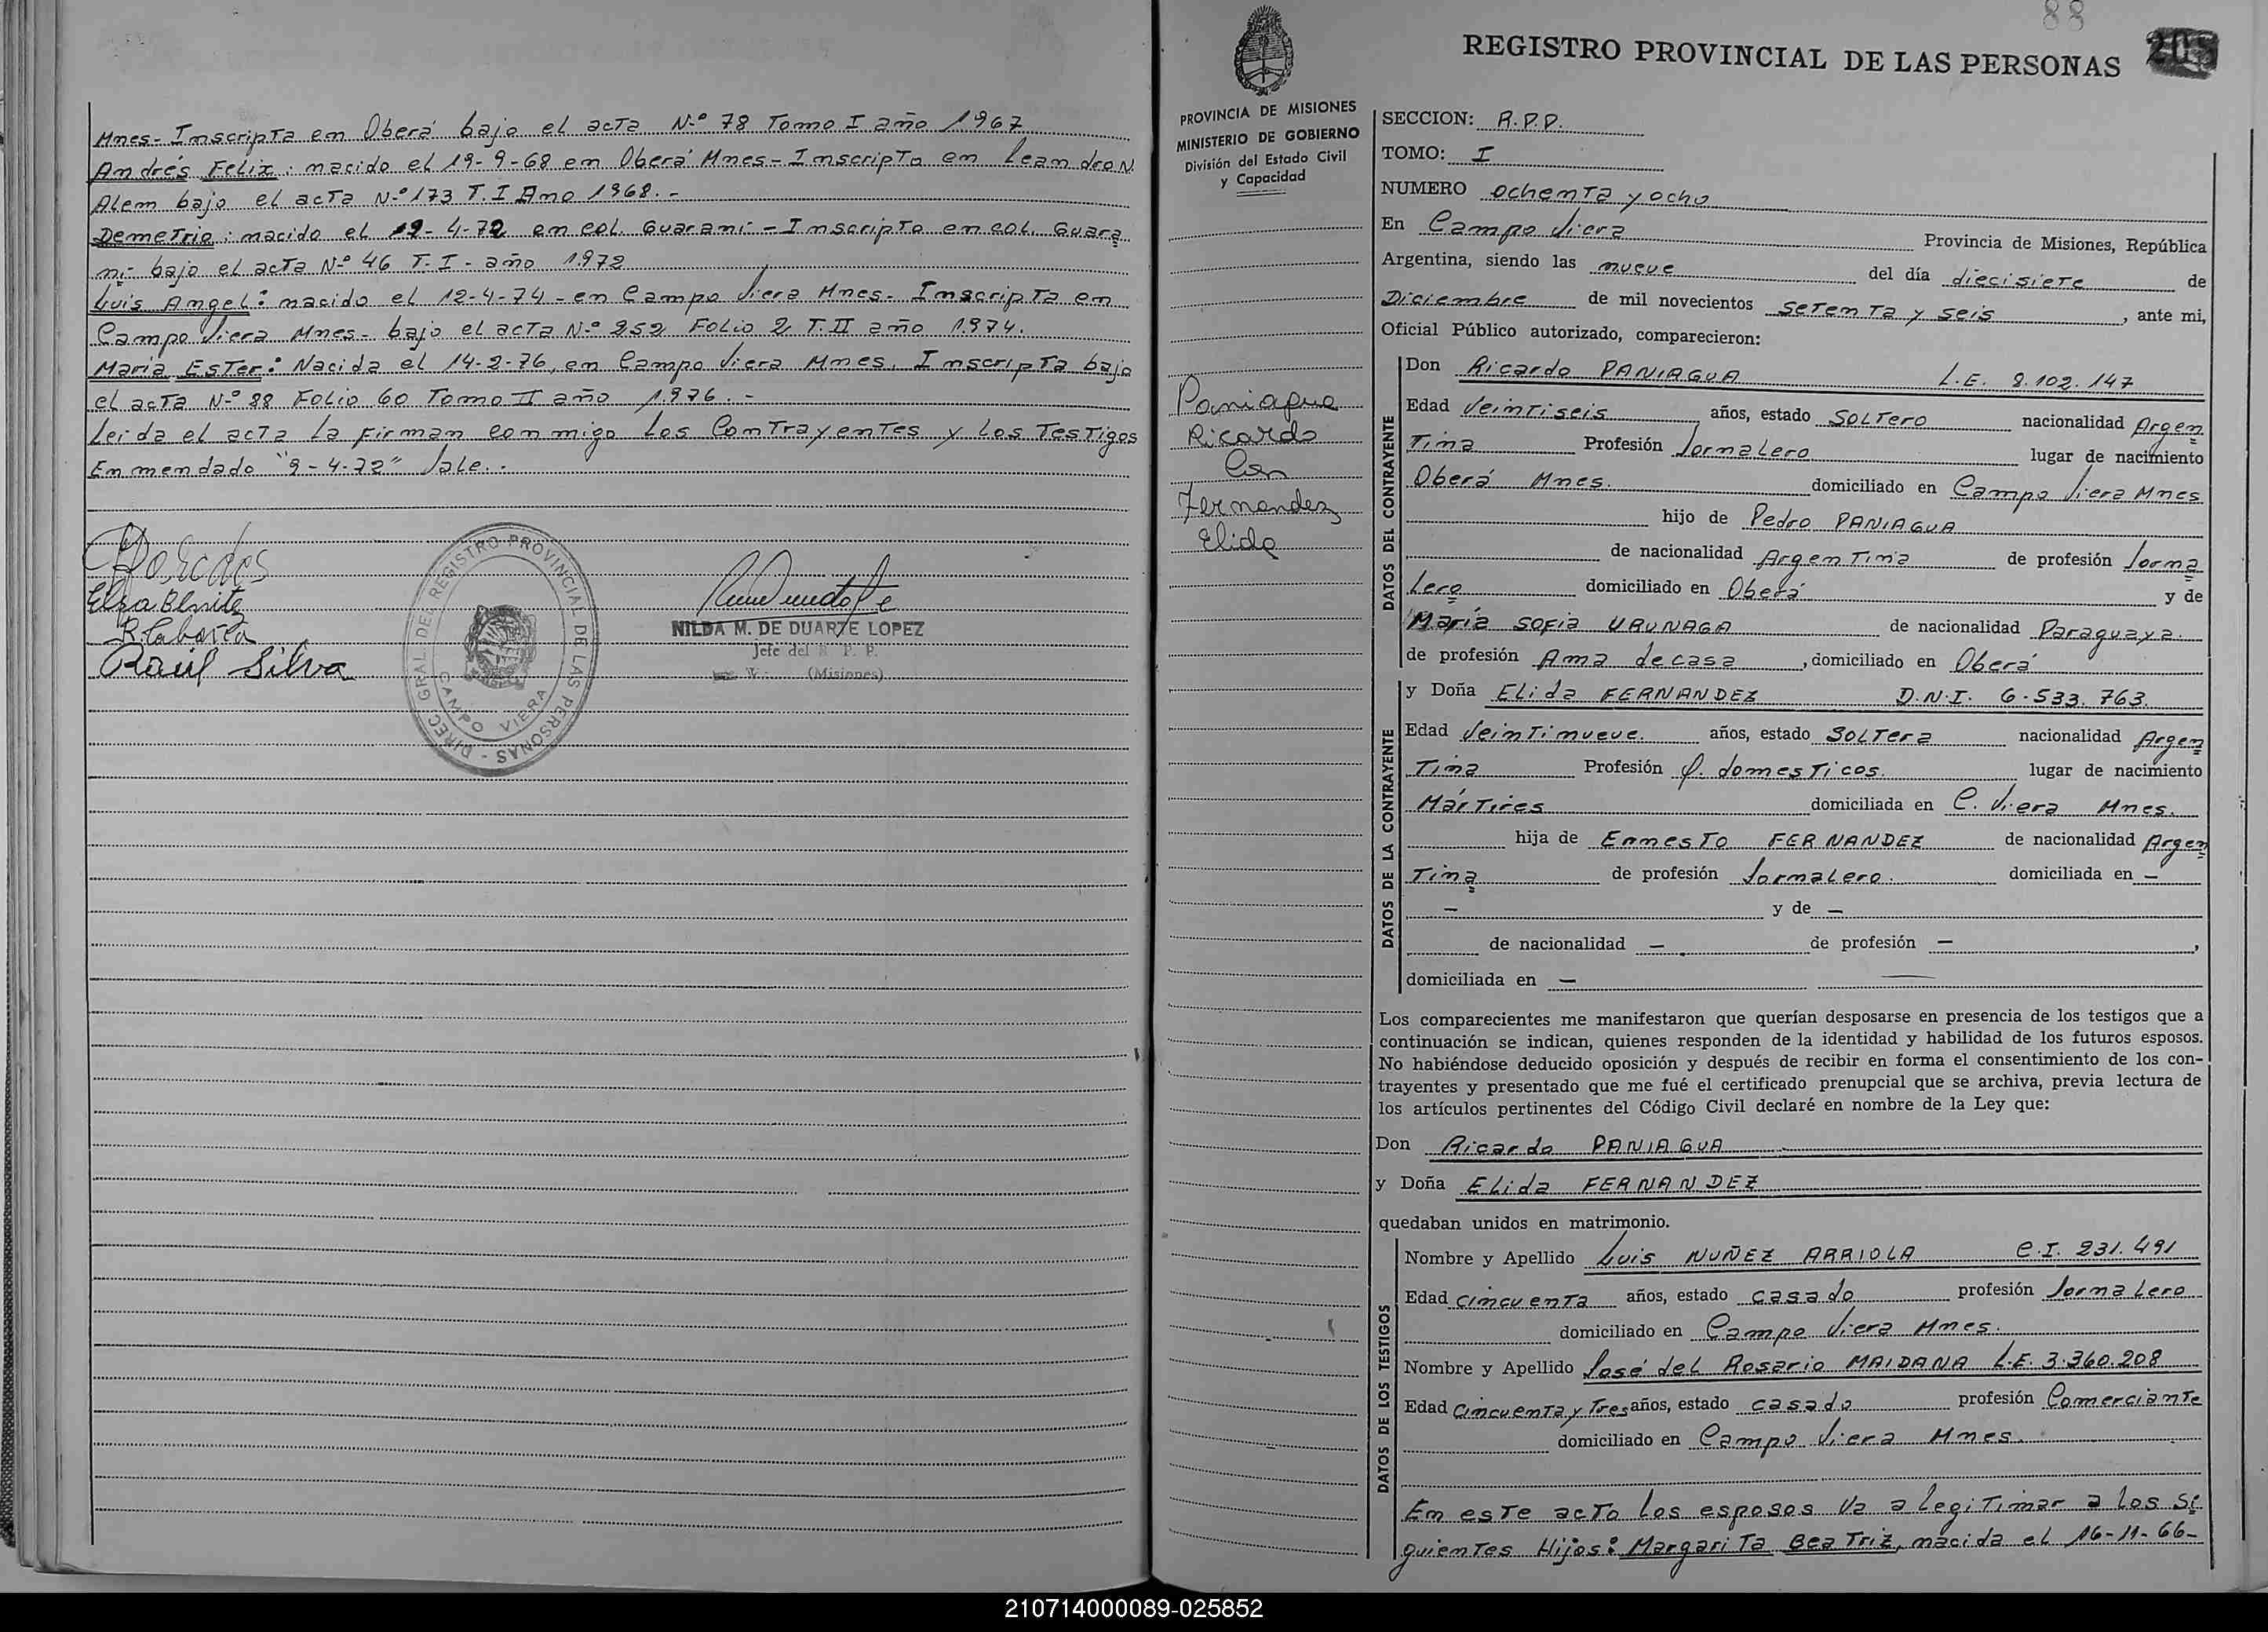 Mnes- Inscripta en Oberá bajo el acta N-º 78 Tomo I año 1967
Andrés Felix: nacido el 19-9-68 en Oberá Mnes- Inscripto en Leandro N.
Alem bajo el acta N-º 173 T. I Año 1968.-
Demetrio: nacido el 9-4-72 en col. Guaraní - Inscripto en col. Guara
ní- bajo el acta N-º 46 T. I - año 1972
Luis Angel: nacido el 12-4-74 - en Campo Viera Mnes- Inscripta en
Campo Viera Mnes- bajo el acta N-º 252 Folio 2 T. II año 1974.
María Ester: Nacida el 14-2-76, en Campo Viera Mnes. Inscripta bajo
el acta N-º 88 Folio 60 Tomo II año 1976.-
Leida el acta la firman conmigo los Contrayentes y los Testigos
Enmendado "9-4-72" Vale.-
Elsa Benite
Raúl Silva
DIREC. GRAL. DEL REGISTRO PROVINCIAL DE LAS PERSONAS -
CAMPO VIERA
NILDA M. DE DUARTE LOPEZ
Jefe del R. P. P.
(Misiones)
88
205
REGISTRO PROVINCIAL DE LAS PERSONAS
PROVINCIA DE MISIONES
MINISTERIO DE GOBIERNO
División del Estado Civil
y Capacidad
Paniagua
Ricardo
Con
Fernandez
Elida
SECCION: R.P.P.
TOMO: I
NUMERO ochenta y ocho
En Campo Viera Provincia de Misiones, República
Argentina, siendo las nueve del día diecisiete de
Diciembre de mil novecientos setenta y seis, ante mi,
Oficial Público autorizado, comparecieron:
DATOS DEL CONTRAYENTE
Don Ricardo PANIAGUA L.E. 8.102.147
Edad Veintiseis años, estado SOLTERO nacionalidad Argen
Tina Profesión Jornalero lugar de nacimiento
Oberá Mnes. domiciliado en Campo Viera Mnes
hijo de Pedro PANIAGUA
de nacionalidad Argentina de profesión Jorna
Lero domiciliado en Oberá y de
María Sofia URUNAGA de nacionalidad Paraguaya.
de profesión Ama de casa, domiciliado en Oberá
DATOS DE LA CONTRAYENTE
y Doña Elida FERNANDEZ D.N.I. 6.533.763.
Edad Veintinueve. años, estado Soltera nacionalidad Argen
Tina Profesión Q. domesticos. lugar de nacimiento
Mártires domiciliada en C. Viera Mnes.
hija de Ernesto FERNANDEZ de nacionalidad Argen
Tina de profesión Jornalero. domiciliada en —
— y de —
de nacionalidad — de profesión — ,
domiciliada en —
Los comparecientes me manifestaron que querían desposarse en presencia de los testigos que a
continuación se indican, quienes responden de la identidad y habilidad de los futuros esposos.
No habiéndose deducido oposición y después de recibir en forma el consentimiento de los con-
trayentes y presentado que me fué el certificado prenupcial que se archiva, previa lectura de
los artículos pertinentes del Código Civil declaré en nombre de la Ley que:
Don Ricardo PANIAGUA
y Doña Elida FERNANDEZ
quedaban unidos en matrimonio.
DATOS DE LOS TESTIGOS
Nombre y Apellido Luis NUÑEZ ARRIOLA C.I. 231.491
Edad cincuenta años, estado casado profesión Jornalero
domiciliado en Campo Viera Mnes.
Nombre y Apellido José del Rosario MAIDANA L.E. 3.360.208
Edad Cincuenta y Tres años, estado casado profesión Comerciante
domiciliado en Campo Viera Mnes.
En este acto los esposos va a legitimar a los si
guientes Hijos: Margarita Beatriz, nacida el 16-11-66-
210714000089-025852